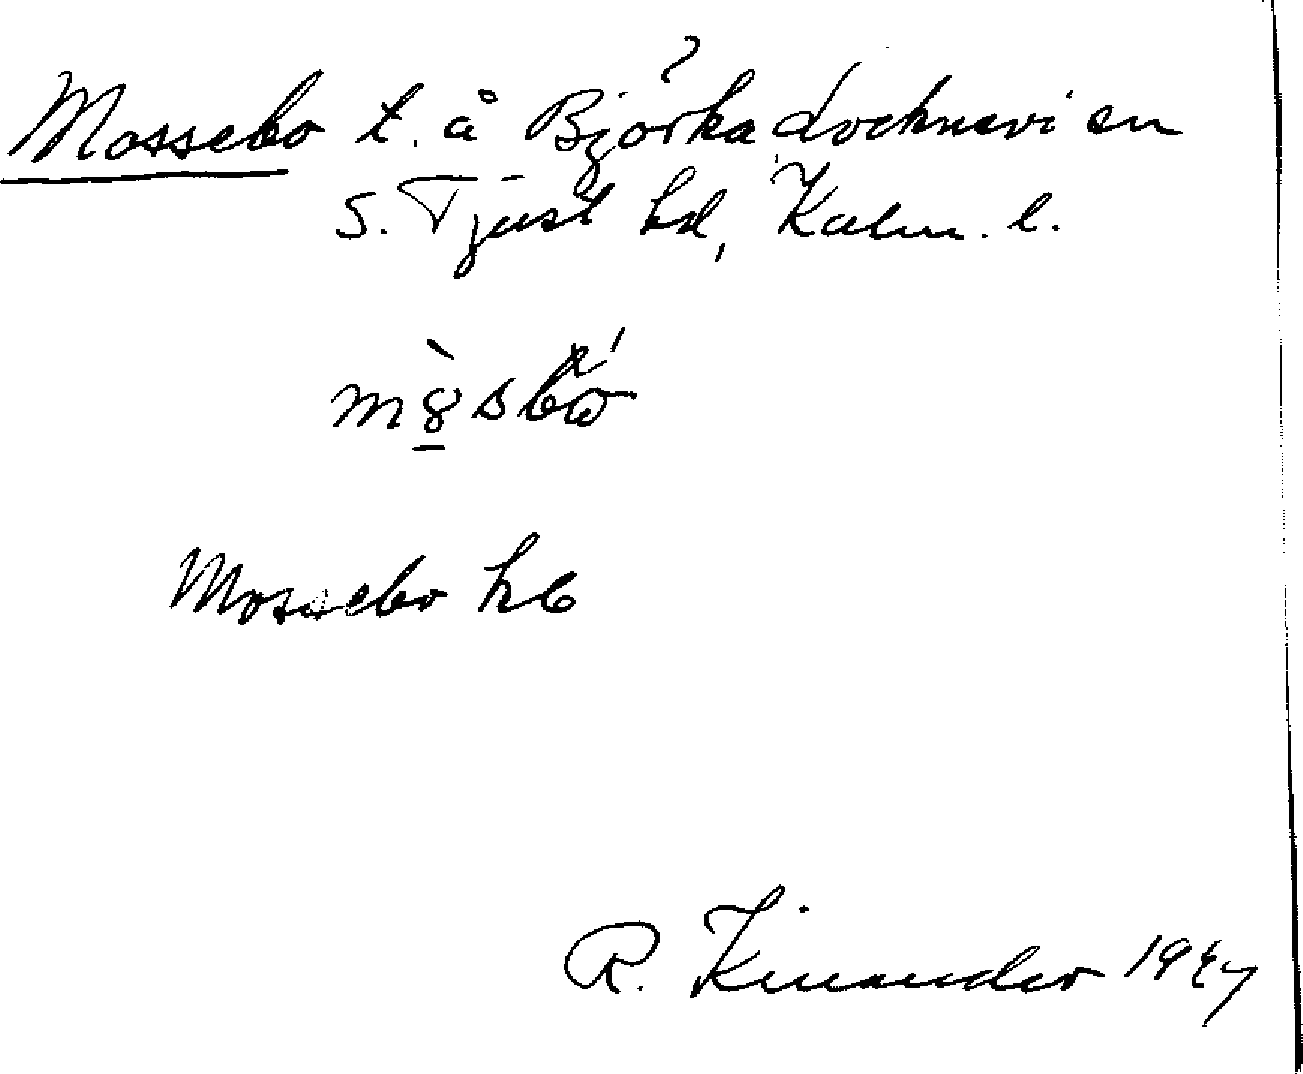 Mossebo t. å Björka Locknevi sn
S. Tjust hd, Kalm. l.
Mossebo hb
R. Kinander 1947